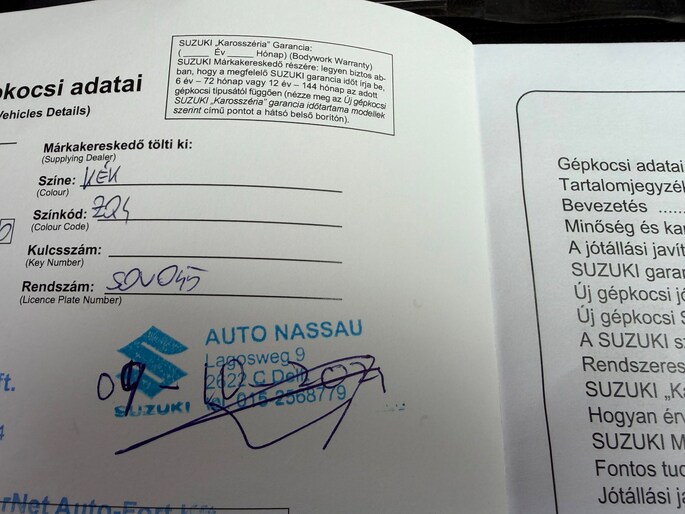 SUZUKI „Karosszéria” Garancia:
(____ Év ____ Hónap) (Bodywork Warranty)
SUZUKI Márkakereskedő részére: legyen biztos ab-
ban, hogy a megfelelő SUZUKI garancia időt írja be,
6 év – 72 hónap vagy 12 év – 144 hónap az adott
gépkocsi típusától függően (nézze meg az Új gépkocsi
SUZUKI „Karosszéria” garancia időtartama modellek
szerint című pontot a hátsó belső borítón).
pkocsi adatai
Vehicles Details)
Márkakereskedő tölti ki:
(Supplying Dealer)
Színe: KÉK
(Colour)
Színkód: ZQ4
(Colour Code)
Kulcsszám:
(Key Number)
Rendszám:
(Licence Plate Number)
AUTO NASSAU
Lagosweg 9
2622 C Delft
tel. 015-2568779
SUZUKI
09-10-
ft.
4
erNet Auto-Fort Kft.
Gépkocsi adatai
Tartalomjegyzék
Bevezetés ......
Minőség és kar
A jótállási javít
SUZUKI garan
Új gépkocsi jó
Új gépkocsi S
A SUZUKI sz
Rendszeres
SUZUKI „Ka
Hogyan érv
SUZUKI M
Fontos tud
Jótállási ja